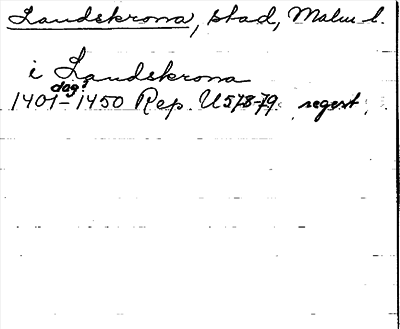 Landskrona, stad, Malm l.
i Landskrona
dag?
1401-1450 Rep. U 578-79. regest.